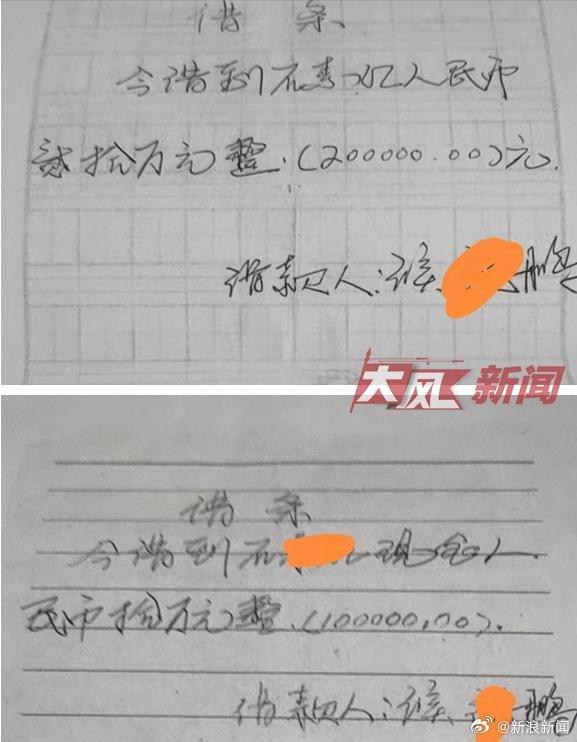 借条
今借到石寿江人民币
贰拾万元整.(200000.00)元.
借款人:谈 鹏
大风新闻
借条
今借到石 现金人
民币拾万元整.(100000.00).
借款人:谈 鹏
@新浪新闻